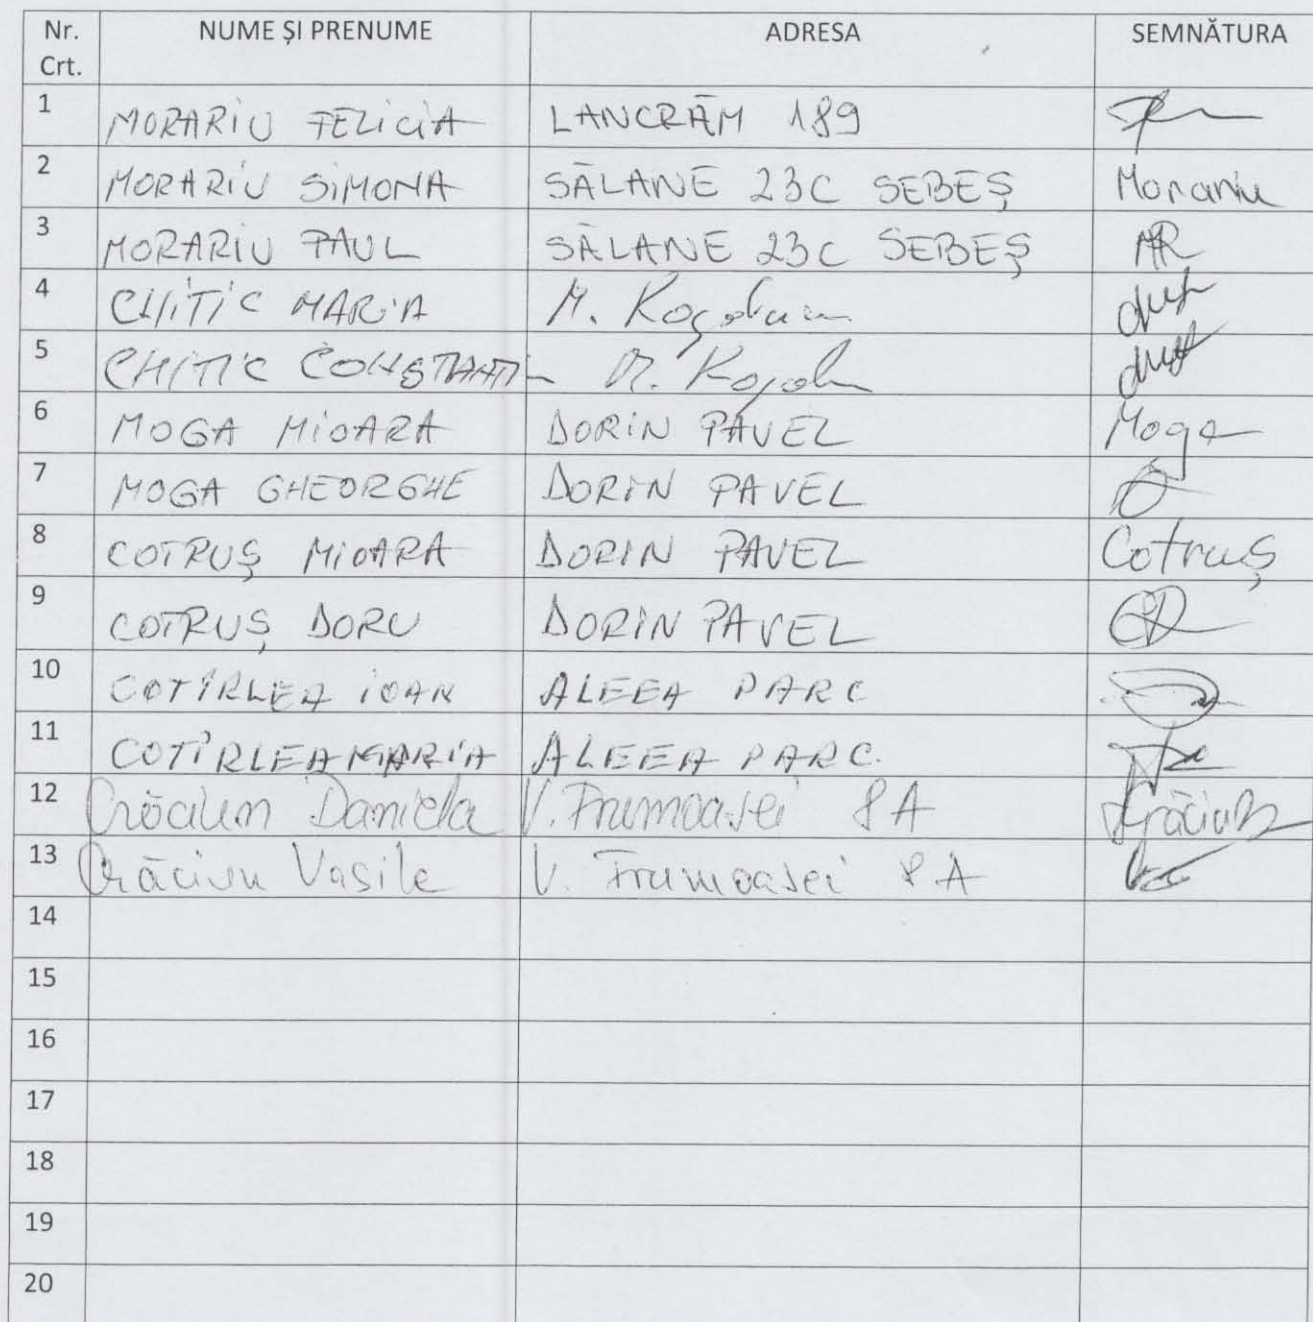 Nr. Crt. NUME ȘI PRENUME ADRESA SEMNĂTURA
1 MORARIU FELICIA LANCRĂM 189
2 MORARIU SIMONA SĂLANE 23C SEBEȘ Morariu
3 MORARIU PAUL SĂLANE 23C SEBEȘ
4 CHITIC MARIA M.
5 CHITIC CONSTANTIN M.
6 MOGA MIOARA DORIN PAVEL Moga
7 MOGA GHEORGHE DORIN PAVEL
8 COTRUȘ MIOARA DORIN PAVEL Cotruș
9 COTRUȘ DORU DORIN PAVEL
10 COTÎRLEA IOAN ALEEA PARC
11 COTÎRLEA MARIA ALEEA PARC.
12 Crăciun Daniela V. Frumoasei 8A
13 Crăciun Vasile V. Frumoasei 8A
14
15
16
17
18
19
20